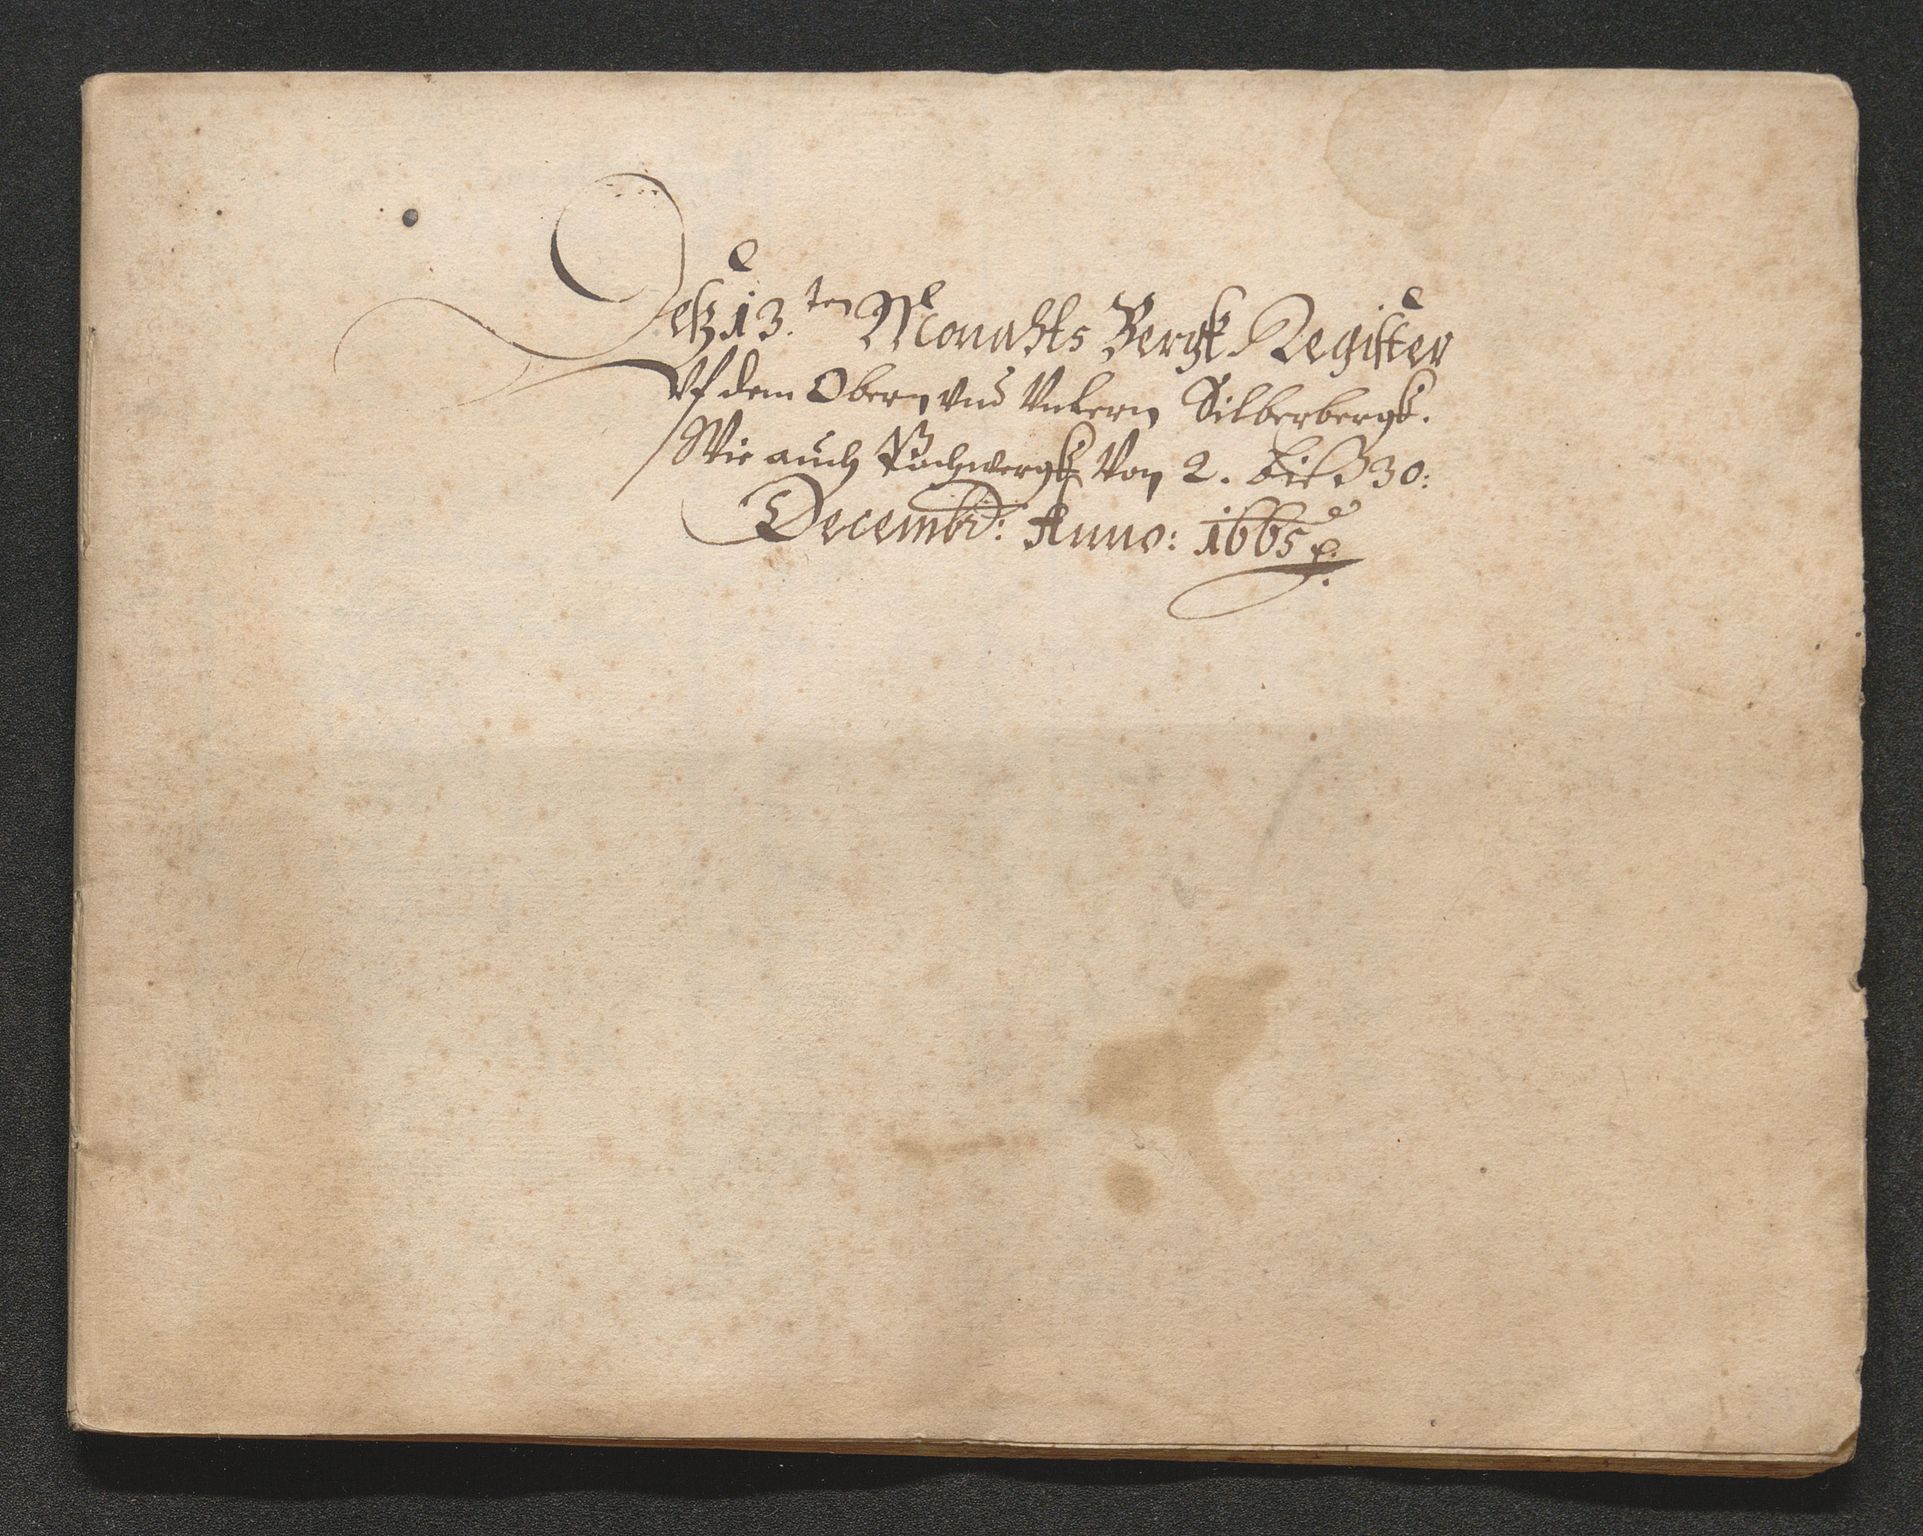 Deß 13.ten Monahts Bergk Register
Vf dem Obern vnd Vntern Silberbergk.
Wie auch Puchwergk Von 2. biß 30:
Decembr: Anno: 1665 p.